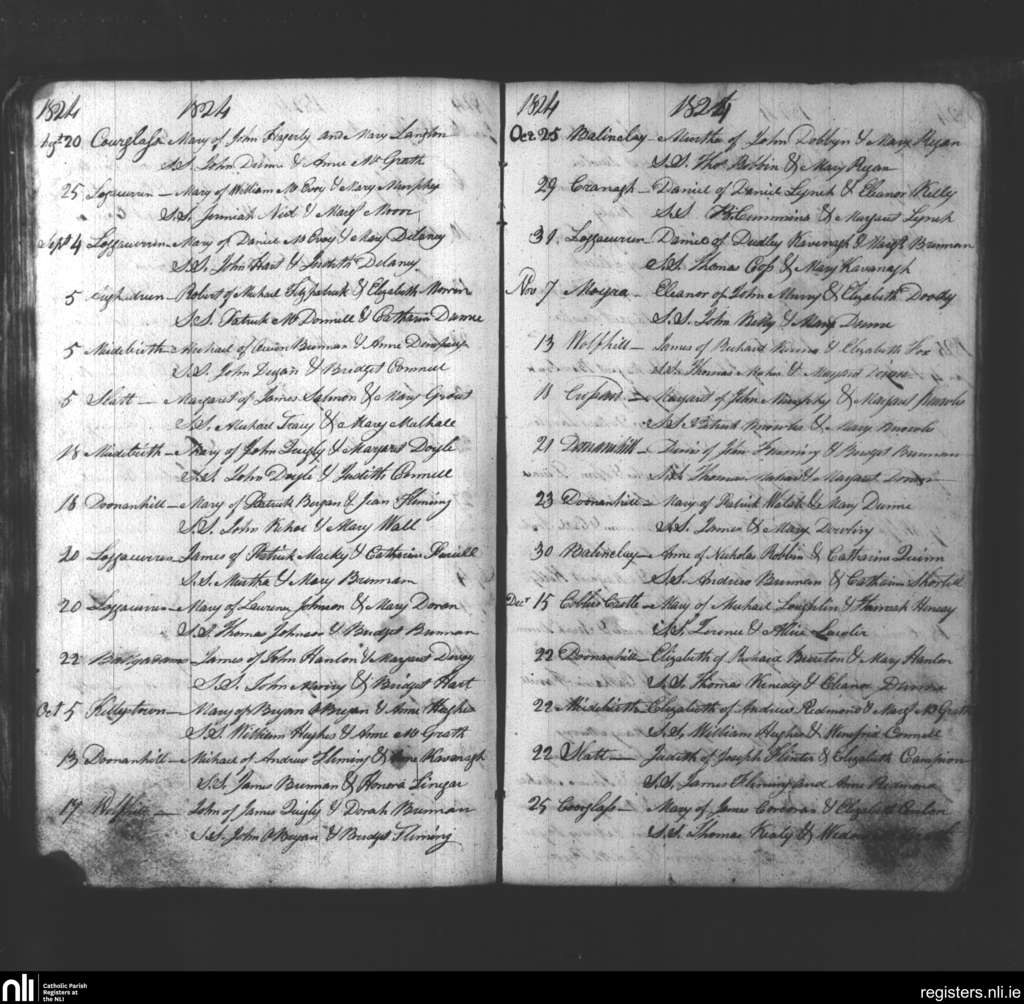 1824 1824
20 Courglass Mary of John Hagerty and Mary Langton
S.S. John Dunne & Anne McGrath
25 Loggacurren Mary of William McEvoy & Mary Murphy
S.S. Jeremiah Neil & Margt Moor
Sept 4 Loggacurren Mary of Daniel McEvoy & Mary Delaney
S.S. John Hart & Judith Delaney
5 Robert of Michael Fitzpatrick & Elizabeth
S.S. Patrick McDonnell & Catharin Dunne
5 Midebirth Michael of Owen Brenan & Anne Dempsey
S.S. John Dugan & Bridget Connell
5 Slatt Margaret of James Salmon & Mary
S.S. Michael Tracy & Mary Mulhall
18 Midebirth Mary of John Quigly & Margaret Doyle
S.S. John Doyle & Judith Connell
18 Doonanhill Mary of Patrick Bryan & Jean Fleming
S.S. John Kehoe & Mary Wall
20 Loggacurren James of Patrick Macky & Catharine
S.S. Murtha & Mary Brennan
20 Loggacurren Mary of Laurence Johnson & Mary Doran
S.S. Thomas Johnson & Bridget Brennan
22 James of John Hanlon & Margaret
S.S. John & Bridget Hart
Oct 5 Mary of Bryan OBryan & Anne Hughes
S.S. William Hughes & Anne McGrath
13 Doonanhill Michael of Andrew Fleming & Anne Kavanagh
S.S. James Brennan & Honora Linegar
17 Wolfhill John of James Quigly & Dorah Brennan
S.S. John OBryan & Bridget Fleming
1824 1824
Oct 25 Balinclay Murtha of John Dobbyn & Mary Regan
S.S. Thos & Mary Regan
29 Cranagh Daniel of Daniel Lynch & Eleanor Kelly
S.S. Cummins & Margaret Lynch
31 Loggacurren Daniel of Dudley Kavenagh & Margt Brennan
S.S. Thomas & Mary Kavanagh
Nov 7 Moyra Eleanor of John & Elizabeth Doody
S.S. John & Mary Dunne
13 Wolfhill James of Richard & Elizabeth Fox
S.S. Thomas & Margaret
18 Margaret of John Murphy & Margaret
S.S. Patrick & Mary
21 Doonanhill Denis of John Fleming & Bridget Brennan
S.S. Thomas & Margaret
23 Doonanhill Mary of Patrick Walsh & Mary Dunne
S.S. James & Mary Dowling
30 Balinclay Anne of Nicholas & Catharine Quinn
S.S. Andrew Brennan & Catharine Shortill
Decr 15 Collins Castle Mary of Michael Loughlin & Hannah
S.S. Terence & Alice Lawler
22 Doonanhill Elizabeth of Richard Brereton & Mary Hanlon
S.S. Thomas Kenedy & Eleanor Dunne
22 Midebirth Elizabeth of Andrew Redmond & Margt McGrath
S.S. William Hughes & Winefrid Connell
22 Slatt Judith of Joseph & Elizabeth Campion
S.S. James Fleming and Anne Redmond
25 Courglass Mary of James Corcoran & Elizabeth Conlan
S.S. Thomas Kealy &
nli Catholic Parish
Registers at
the NLI
registers.nli.ie